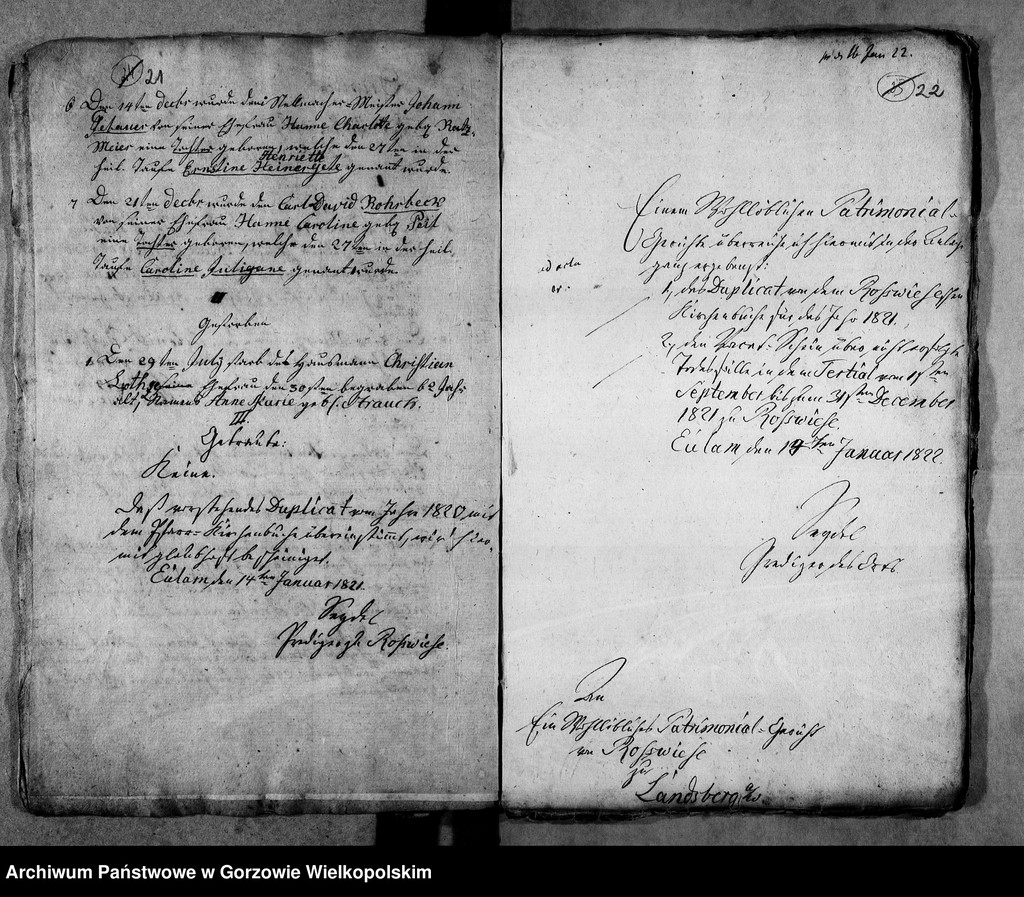 21
6 Den 14ten Decbr wurde dem Stellmacher-Meister Johann
Gebauer von seiner Ehefrau Hanne Charlotte gebg Ratz-
Meier eine Tochter geboren, welche den 27ten in der
Henriette
heil. Taufe Ernstine genant wurde.
7 Den 21ten Decbr wurde den Carl David Rohrbeck
von seiner Ehefrau Hanne Caroline gebg
eine Tochter geboren, welche den 27ten in der heil.
Taufe Caroline Juligane genant wurde.
Gestorben
1. Den 29ten July starb des Hausmann Christian
Ehefrau den 30sten begraben 62 Jahr
alt, Namens Anne Marie geb. Strauch.
III.
Getraute:
Keine.
Daß vorstehendes Duplicat vom Jahr 1820 mit
dem Pfarr-Kirchenbuche übereinstimmt, wird hier-
mit glaubhaft bescheiniget.
Eulam den 14ten Januar 1821.
Seydel
Prediger zu Roßwiese.
16 Jan 22.
22
Einem Wohllöblichen Patrimonial-
Gericht überreiche ich hiermit in der Anlage
ganz ergebenst:
ad acta
1, das Duplicat von dem Roßwieseschen
Kirchenbuche für das Jahr 1821.
2, den Vacat-Schein über nicht erfolgte
Todesfälle in dem Tertial vom 1sten
September bis zum 31sten December
1821 zu Roßwiese.
Eulam den 14ten Januar 1822.
Seydel
Prediger des Orts
An
Ein Wohllöbliches Patrimonial-Gericht
von Roßwiese
zu
Landsberg a/w.
Archiwum Państwowe w Gorzowie Wielkopolskim